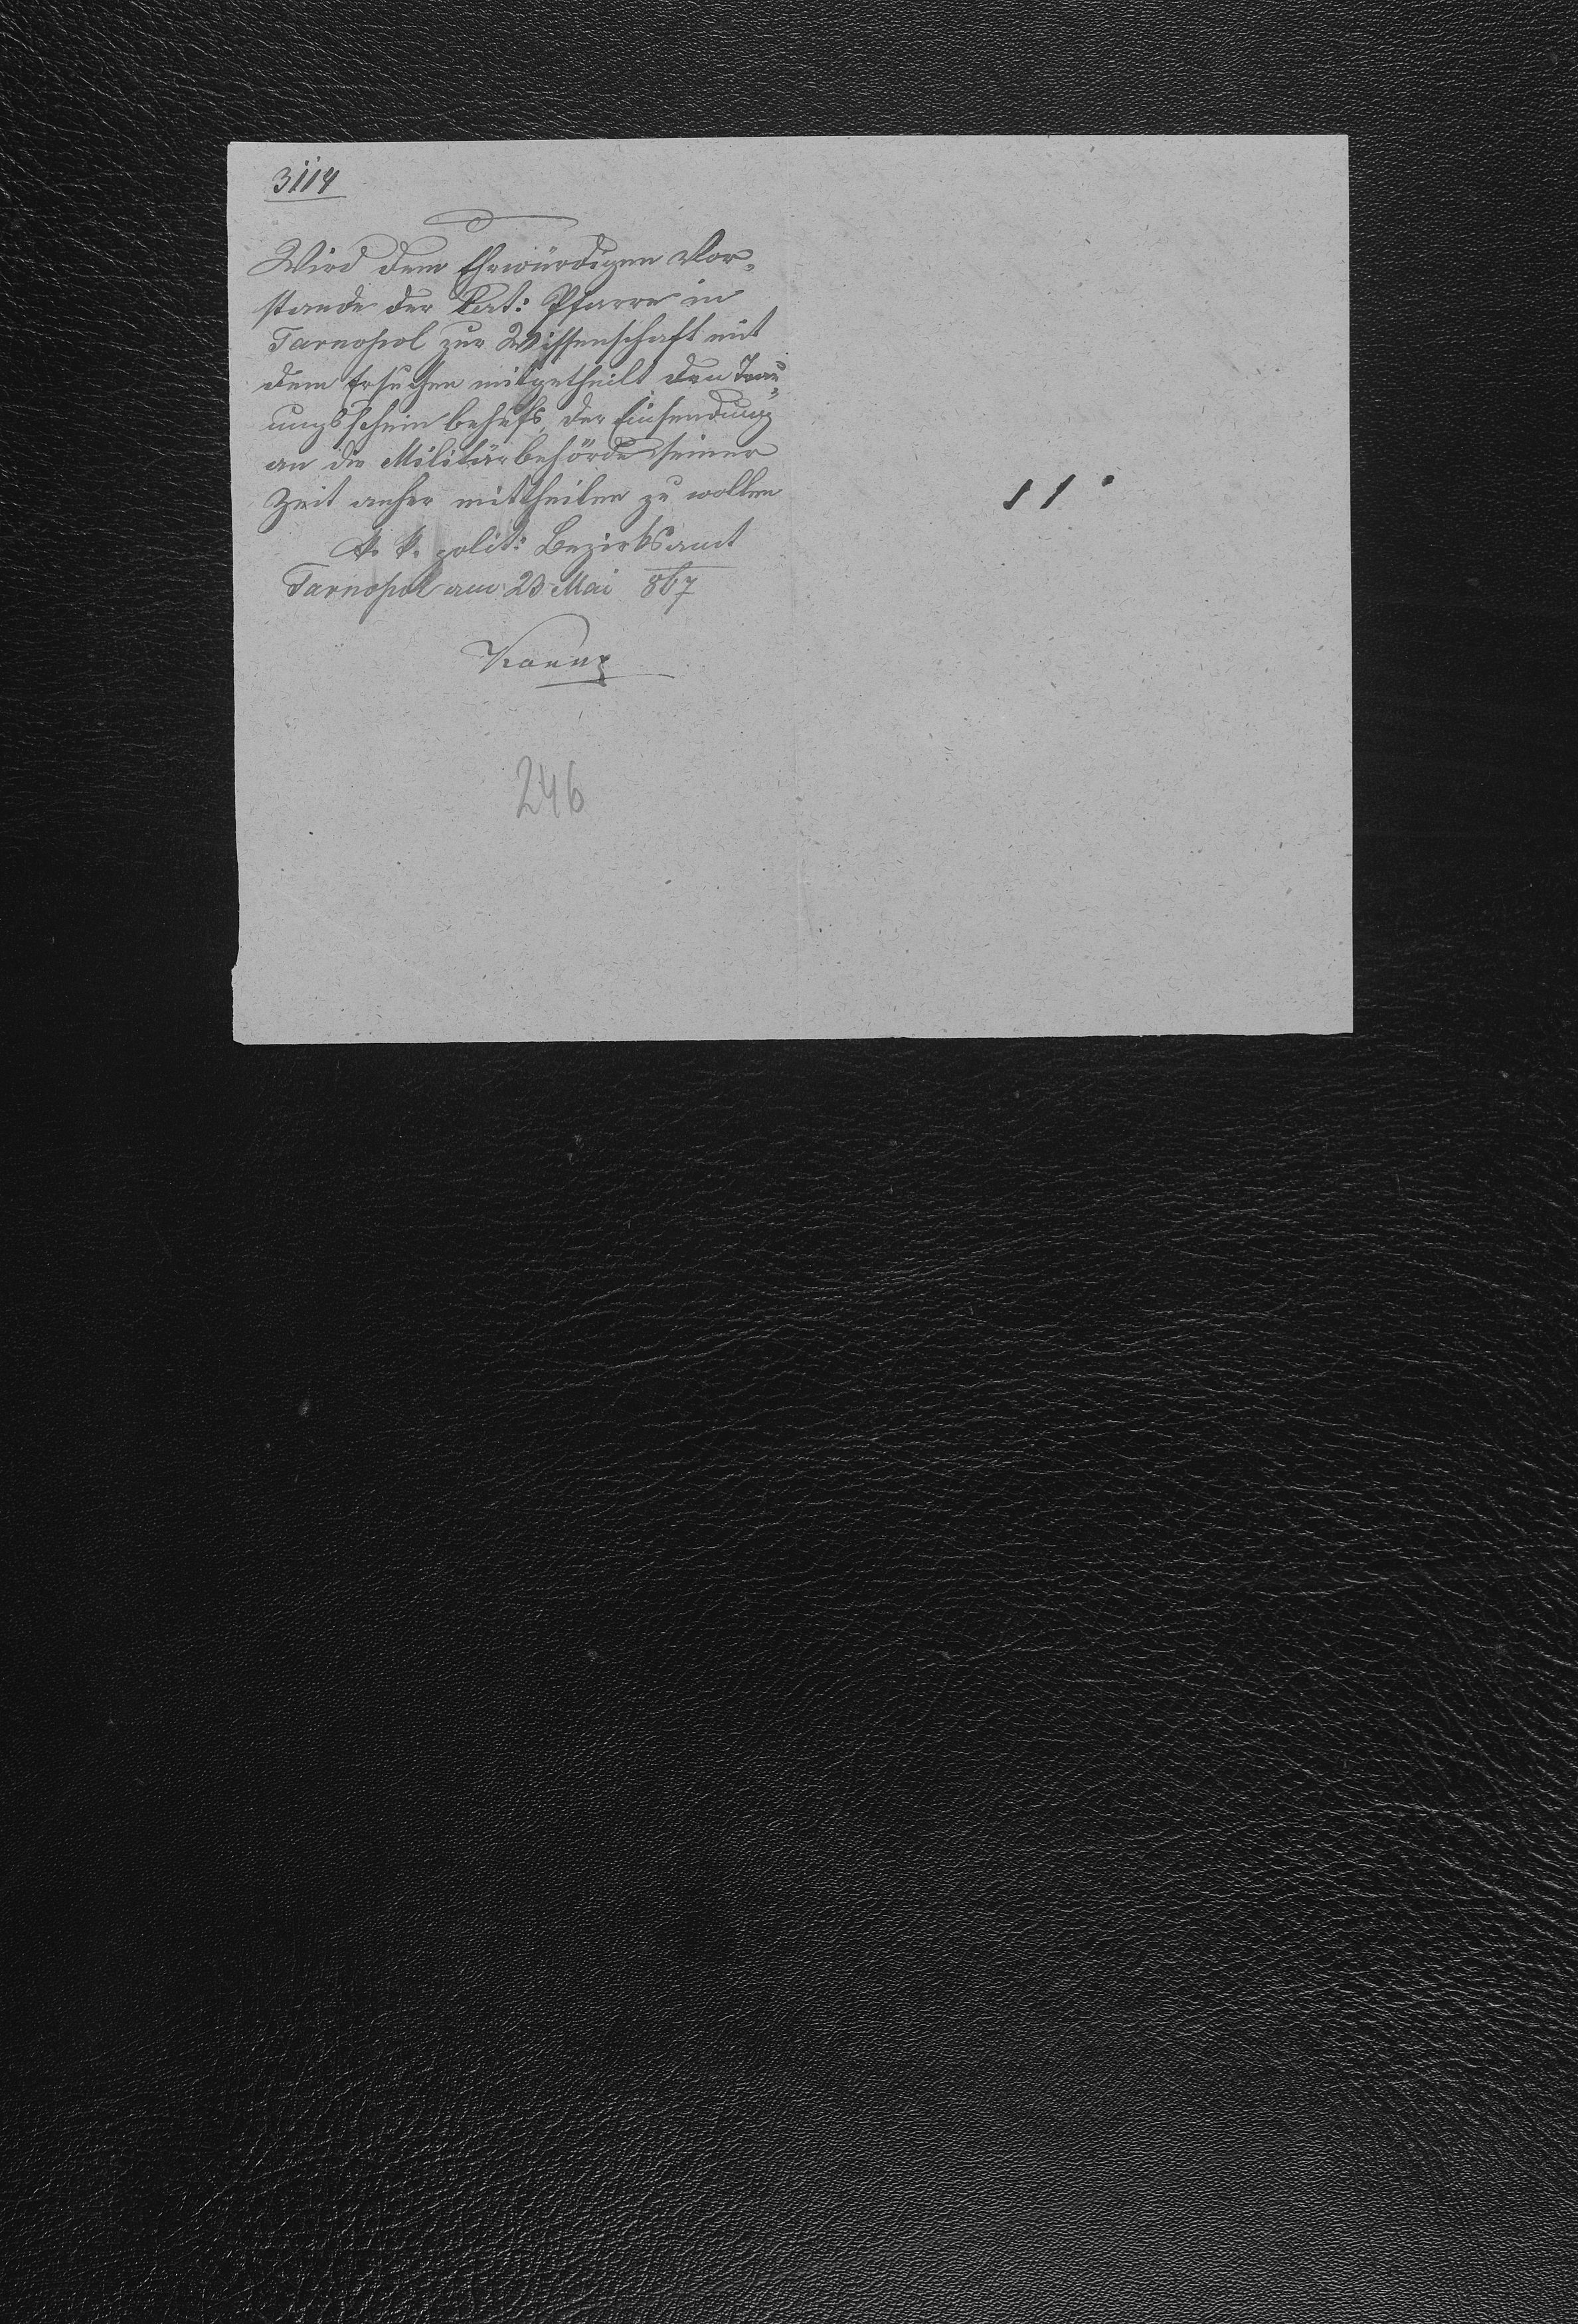 3114
Wird dem Ehrwürdigen Vor„
stande der Lat: Pfarre in
Tarnopol zur Wissenschaft mit
dem Ersuchen mitgetheilt den Trau„
ungsschein behufs der Einsendung
an die Militärbehörde seiner
Zeit anher mittheilen zu wollen
K. K. polit: Bezirksamt
Tarnopol am 23 Mai 867
246